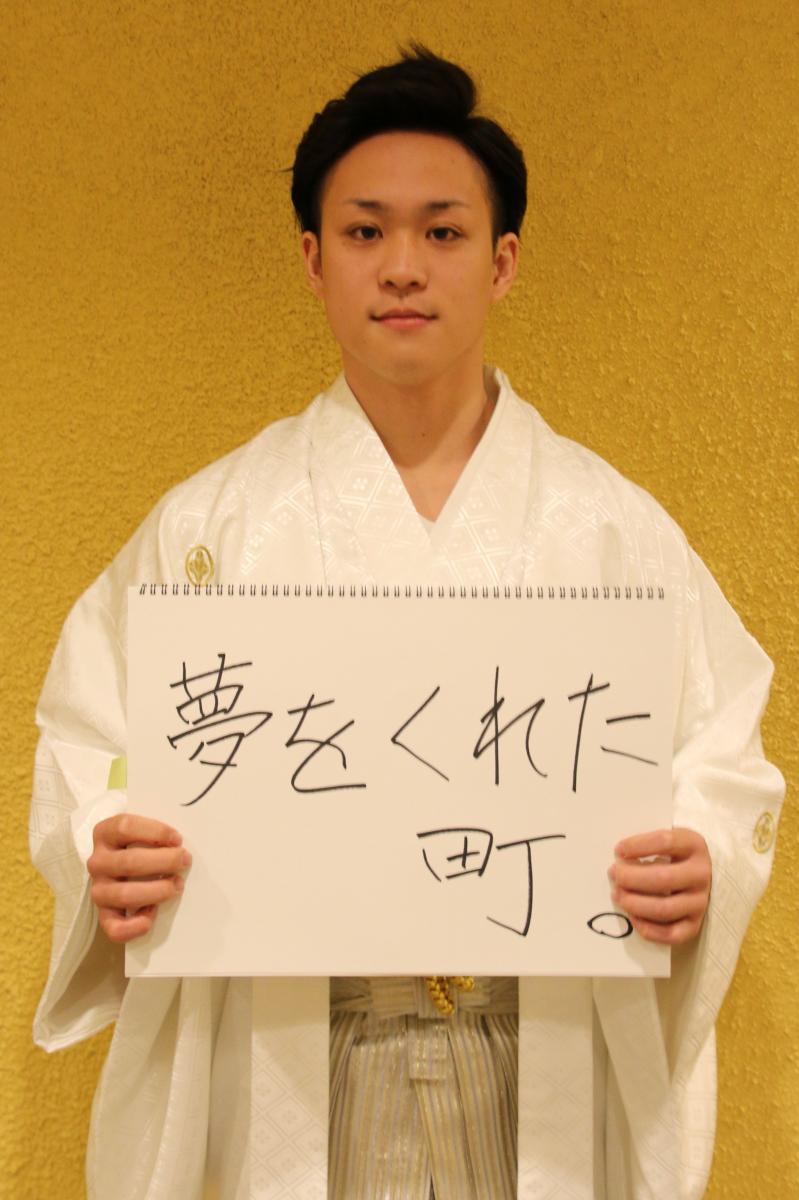 夢をくれた
町。